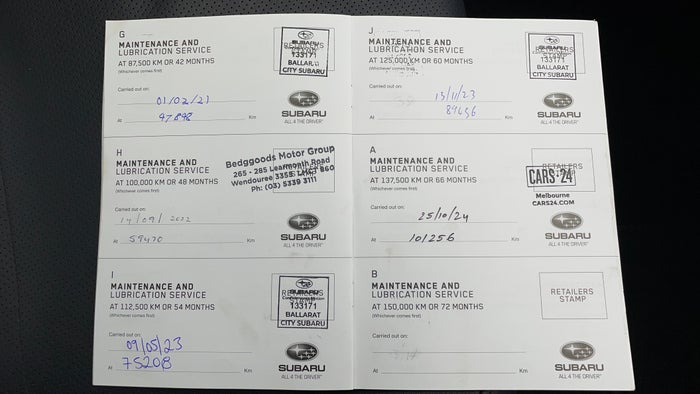 G
MAINTENANCE AND
LUBRICATION SERVICE
AT 87,500 KM OR 42 MONTHS
(Whichever comes first)
SUBARU
133171
BALLARAT
CITY SUBARU
Carried out on:
01/02/21
At 47898 Km
SUBARU
ALL 4 THE DRIVER
H
MAINTENANCE AND
LUBRICATION SERVICE
AT 100,000 KM OR 48 MONTHS
(Whichever comes first)
Bedggoods Motor Group
265 - 285 Learmonth Road
Wendouree 3355 LMCT 860
Ph: (03) 5339 3111
Carried out on:
14/09/2022
At 59470 Km
SUBARU
ALL 4 THE DRIVER
I
MAINTENANCE AND
LUBRICATION SERVICE
AT 112,500 KM OR 54 MONTHS
(Whichever comes first)
SUBARU
133171
BALLARAT
CITY SUBARU
Carried out on:
09/05/23
At 75208 Km
SUBARU
ALL 4 THE DRIVER
J
MAINTENANCE AND
LUBRICATION SERVICE
AT 125,000 KM OR 60 MONTHS
(Whichever comes first)
SUBARU
133171
BALLARAT
CITY SUBARU
Carried out on:
13/11/23
At 89456 Km
SUBARU
ALL 4 THE DRIVER
A
MAINTENANCE AND
LUBRICATION SERVICE
AT 137,500 KM OR 66 MONTHS
(Whichever comes first)
RETAILERS
CARS24
Melbourne
CARS24.COM
Carried out on:
25/10/24
At 101256 Km
SUBARU
ALL 4 THE DRIVER
B
MAINTENANCE AND
LUBRICATION SERVICE
AT 150,000 KM OR 72 MONTHS
(Whichever comes first)
RETAILERS
STAMP
Carried out on:
At Km
SUBARU
ALL 4 THE DRIVER